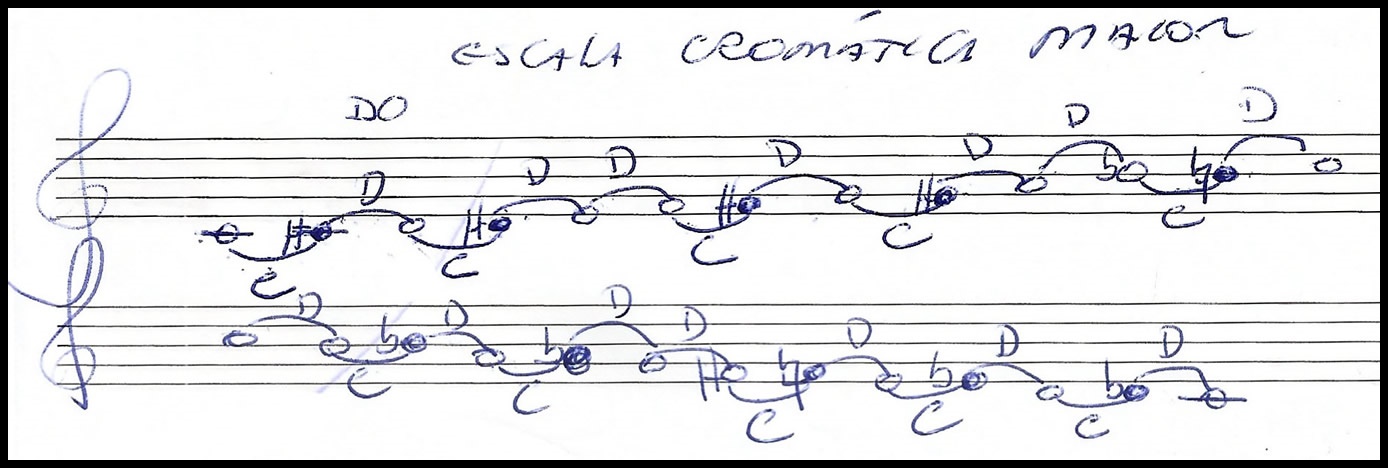 ESCALA CROMÁTICA MAIOR
DO
D D D D D D D
C C C C C
D D D D D D D
C C C C C